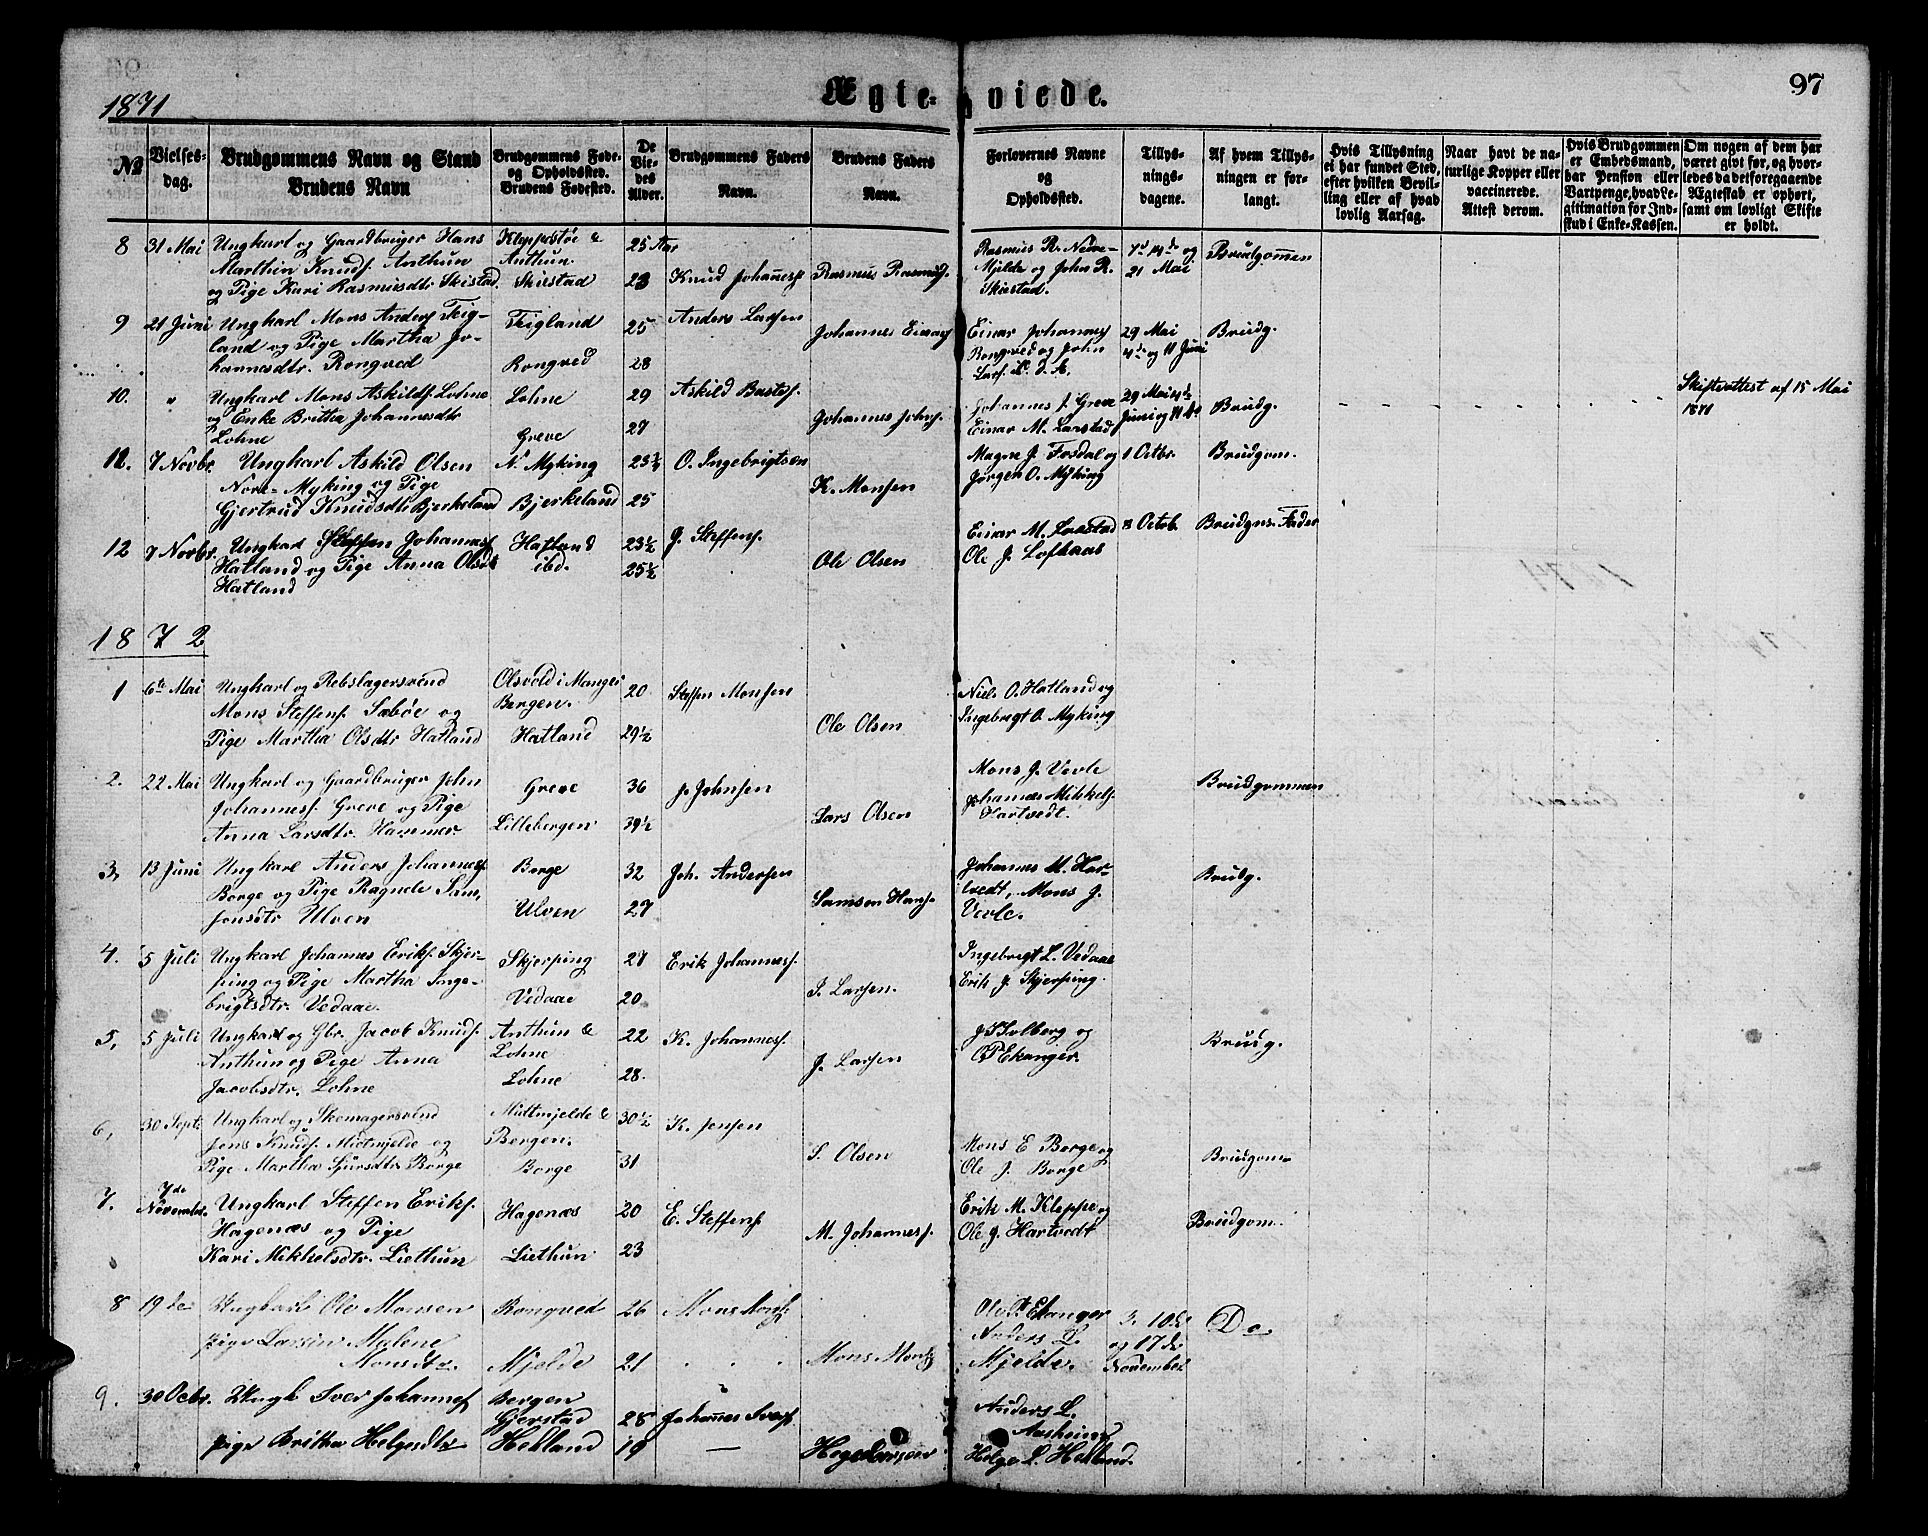 1871
Ægte-viede.
97
No
Vielses-dag.
Brudgommens Navn og Stand
Brudens Navn
Brudgommens Føde- og Opholdssted.
Brudens Fødested.
De Viedes Alder.
Brudgommens Faders Navn.
Brudens Faders Navn.
Forlovernes Navne og Opholdssted.
Tillysningsdagene.
Af hvem Tillysningen er forlangt.
Hvis Tillysning ei har fundet Sted, efter hvilken Bevilling eller af hvad lovlig Aarsag.
Naar havt de naturlige Kopper eller vaccinerede. Attest derom.
Hvis Brudgommen er Embedsmand, har Pension eller Vartpenge, hvad Legitimation for Indskud i Enke-Kassen.
Om nogen af dem har været gift før, og hvorledes da det foregaaende Ægteskab er ophørt, samt om lovligt Skifte er holdt.
8 31 Mai Ungkarl og Gaardbruger Hans Kleppestøe & 25 Aar Rasmus R. Nedre- 7de 14de og Brudgommen
Marthin Knuds. Anthun Anthun. Knud Johanness. Rasmus Rasmuss. Mjelde og John R. 21 Mai
og Pige Kari Rasmusdtr Skistad Skistad 23 Skistad.
9 21 Juni Ungkarl Mons Anders. Teig- Teigland 25 Anders Larsen Johannes Einars. Einar Johannes. 29 Mai Brudg.
land og Pige Martha Jo- Rongved og John 4de og 11 Juni
hannesdtr. Rongved Rongved 28 Lars.
10. " Ungkarl Mons Askilds. Lohne Lohne 29 Askild Baards. Johannes J. Greve 29 Mai 4de Brudg. Skifteattest af 15 Mai
og Enke Britha Johannesdtr Johannes Johns. Einar M. Lastad Juni og 11 do 1871
Lohne Greve 27
11. 7 Novbr. Ungkarl Askild Olsen N. Myking 23½ O. Ingebrigtsen Magne J. Fosdal og 1 Octbr. Brudgom.
Nore-Myking og Pige K. Monsen Jørgen O. Myking
Gjertrud Knudsdtr Bjerkeland Bjerkeland 25
12 7 Novbr. Ungkarl Steffen Johannes. Hatland 23½ J. Steffens. Einar M. Lastad 8 Octob. Brudgns. Fader
Hatland og Pige Anna Olsdtr ibd. 25½ Ole Olsen Ole J. Lofthaas
Hatland
1872
1 6te Mai Ungkarl og Rebslagersvend Olsvold i Manger 20 Steffen Monsen Niels O. Hatland og
Mons Steffens. Sæbøe og Bergen. Ole Olsen Ingebrigt O. Myking
Pige Martha Olsdtr Hatland Hatland 29½
2. 22 Mai Ungkarl og Gaardbruger John Greve 36 J. Johnsen Mons J. Vevle Brudgommen
Johanness. Greve og Pige Lars Olsen Johannes Mikkels.
Anna Larsdtr. Hammer Lillebergen 39½ Hartvedt.
3, 13 Juni Ungkarl Anders Johanness. Borge 32 Joh. Andersen Johannes M. Har- Brudg.
Borge og Pige Ragnele Sam- Samson Hans. tvedt, Mons J.
sonsdtr Ulven Ulven 27 Vevle.
4. 5 Juli Ungkarl Johannes Eriks. Skjer- Skjerping 27 Erik Johanness. Ingebrigt L. Vedaae
ping og Pige Martha Inge- I. Larsen. Erik J. Skjerping.
brigtsdtr. Vedaae. Vedaae 20
5, 5 Juli Ungkarl og Gbr. Jacob Knuds. Anthun & 22 K. Johanness. J Solberg og Brudg.
Anthun og Pige Anna Lohne J. Larsen O P Ekanger.
Jacobsdtr. Lohne Lohne 28.
6, 30 Septr Ungkarl og Skomagersvend Midtmjelde & 30½ K. Jensen Mons E Borge og
Jens Knuds. Midtmjelde og Bergen. S. Olsen Ole J. Borge Brudgom
Pige Martha Sjursdtr Borge Borge 31
7. 7de Novembr. Ungkarl Steffen Eriks. Hagenæs 20 E. Steffens. Erik M. Kleppe og Brudgom.
Hagenæs og Pige M. Johanness. Ole J. Hartvedt
Kari Mikkelsdtr. Liethun Liethun 23
8 19 de Ungkarl Ole Monsen Rongved 26 Mons Mons. Ole P. Ekanger 3. 10de Do
pige Larsin Malene Anders L. og 17de
Monsdtr. Mjelde 21 Mons Mons. Mjelde. November
9. 30 Octbr. Ungk Iver Johannes. Bergen Anders L.
Gjerstad 28 Johannes Ivers. Aasheim
pige Britha Helgesdtr Helland 19 — Hege Larssen Helge L. Helland.